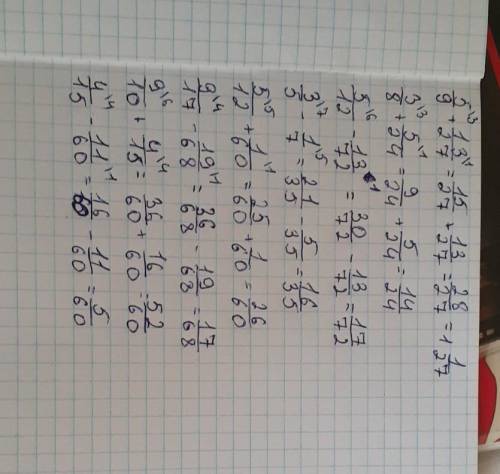 5/9\3 + 13/27\1 = 15/27 + 13/27 = 28/27 = 1 1/27
3/8\3 + 5/24\1 = 9/24 + 5/24 = 14/24
5/12\6 - 13/72\1 = 30/72 - 13/72 = 17/72
3/5\7 - 1/7\5 = 21/35 - 5/35 = 16/35
5/12\5 + 1/60\1 = 25/60 + 1/60 = 26/60
9/17\4 - 19/68\1 = 36/68 - 19/68 = 17/68
9/10\6 + 4/15\4 = 36/60 + 16/60 = 52/60
4/15\4 - 11/60\1 = 16/60 - 11/60 = 5/60